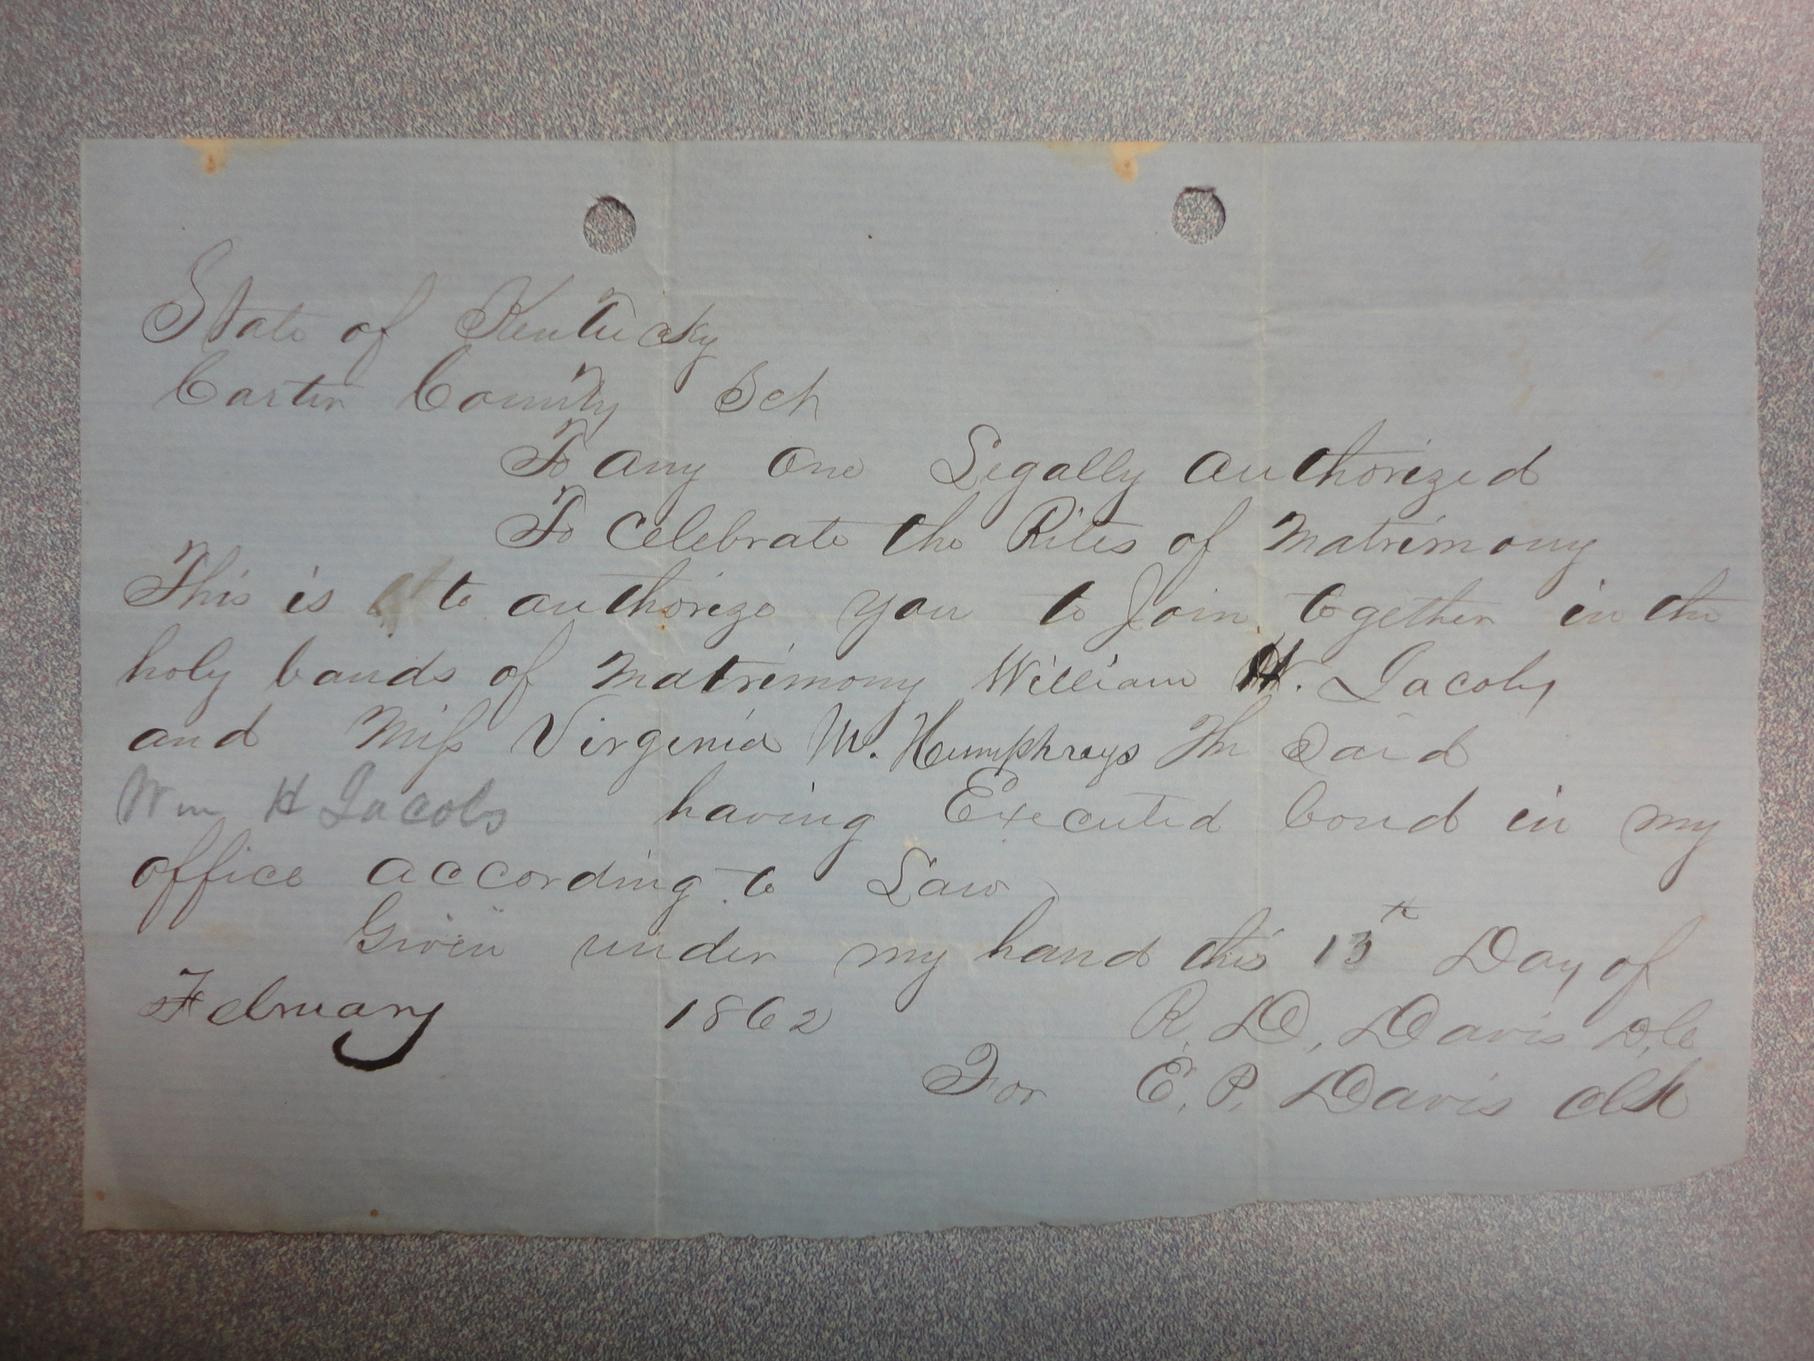 State of Kentucky
Carter County Sch
To any One Legally authorized
To Celebrate the Rites of Matrimony
This is to authorize you to Join together in the
holy bands of Matrimony William H. Jacobs
and Miss Virginia M. Humphreys The Said
Wm H Jacobs having Executed bond in my
office according to Law
Given under my hand this 13th Day of
February 1862 R. D. Davis D.C
For E. P. Davis Clk